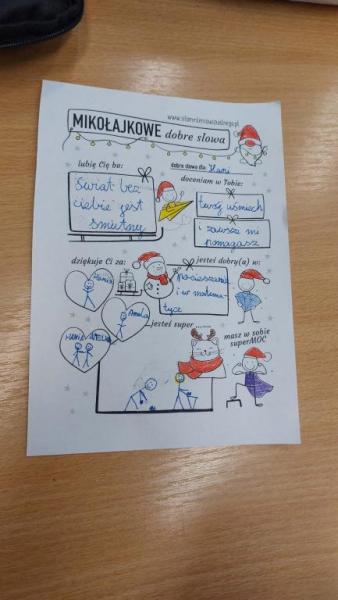 www.slonnieconaudinego.pl
MIKOŁAJKOWE dobre słowa
dobre słowa dla: Hani
lubię Cię bo:
Świat bez
ciebie jest
smutny
doceniam w Tobie:
twój uśmiech
i zawsze mi
pomagasz
dziękuję Ci za:
Hania
Amelia
Hania
jesteś dobry(a) w:
pocieszaniu
i w matema-
tyce
jesteś super ...
masz w sobie
superMOC